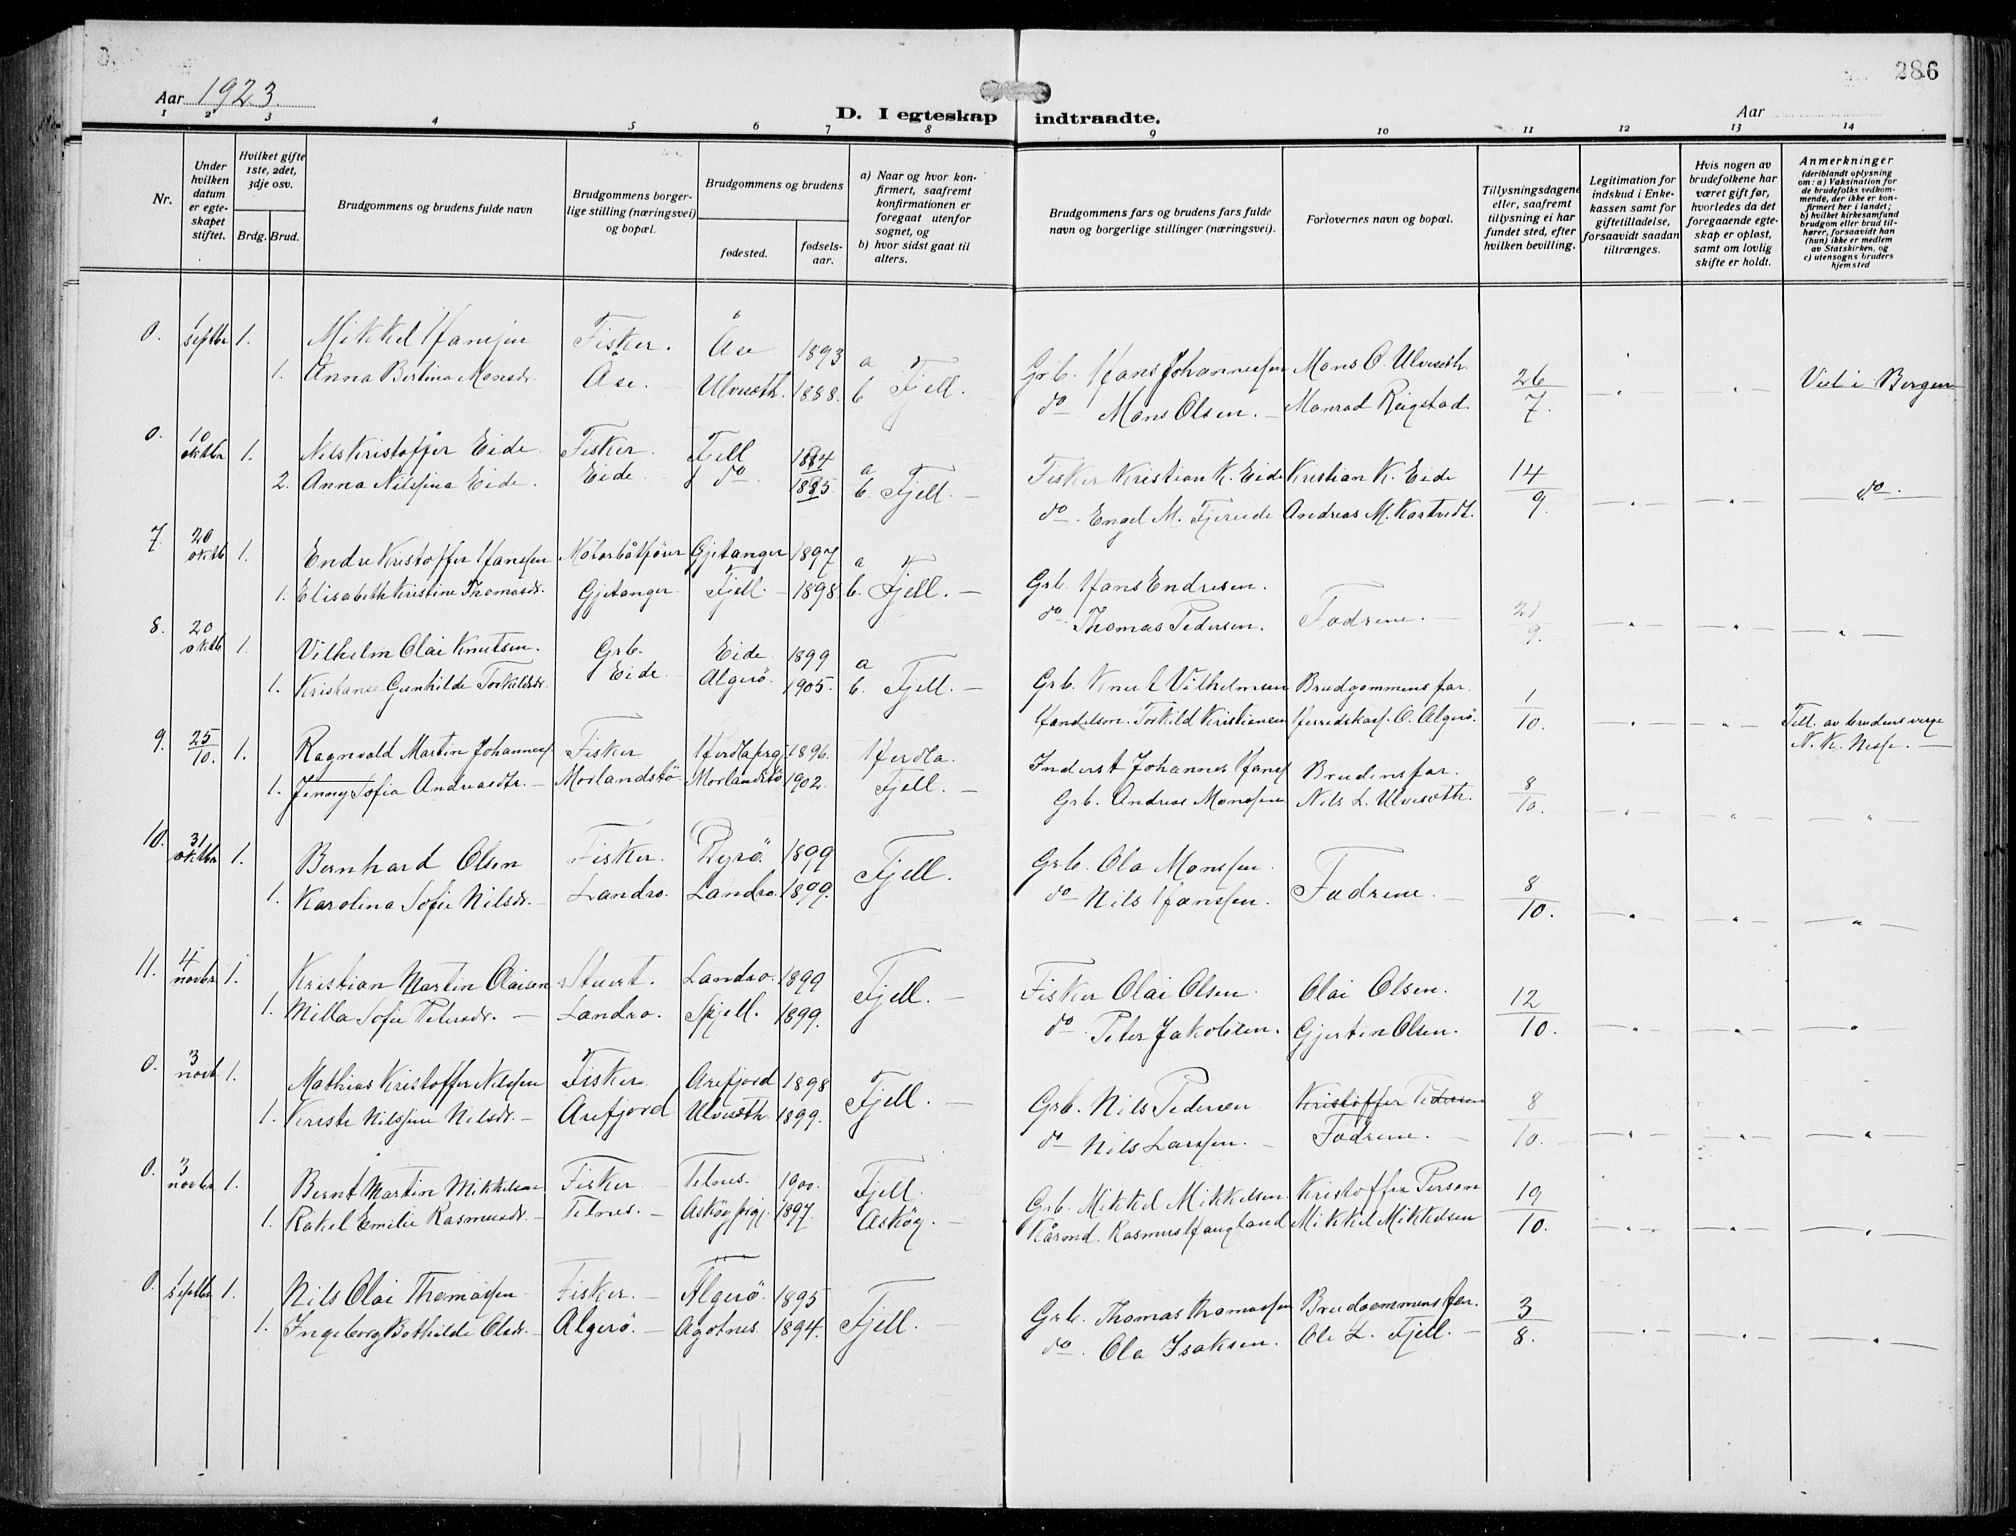 286
Aar 1923
Aar
D. I egteskap indtraadte.
1 2 3 4 5 6 7 8 9 10 11 12 13 14
Nr.
Under hvilken datum er egteskapet stiftet.
Hvilket gifte 1ste, 2det, 3dje osv.
Brdg. Brud.
Brudgommens og brudens fulde navn
Brudgommens borgerlige stilling (næringsvei) og bopæl.
Brudgommens og brudens
fødested.
fødselsaar.
a) Naar og hvor konfirmert, saafremt konfirmationen er foregaat utenfor sognet, og
b) hvor sidst gaat til alters.
Brudgommens fars og brudens fars fulde navn og borgerlige stillinger (næringsvei).
Forlovernes navn og bopæl.
Tillysningsdagene eller, saafremt tillysning ei har fundet sted, efter hvilken bevilling.
Legitimation for indskud i Enkekassen samt for giftetilladelse, forsaavidt saadan tiltrænges.
Hvis nogen av brudefolkene har været gift før, hvorledes da det foregaaende egteskap er opløst, samt om lovlig skifte er holdt.
Anmerkninger (deriblandt oplysning om: a) Vaksination for de brudefolks vedkommende, der ikke er konfirmert her i landet; b) hvilket kirkesamfund brudgom eller brud tilhører, forsaavidt han (hun) ikke er medlem av Statskirken, og c) utensogns bruders hjemsted
0. 1 septbr 1. Mikkel Hansen Fisker. Åse 1893 a Grb. Hans Johannessen Mons O. Ulveseth 26
1. Anna Bertina Monsdr. Åse. Ulveseth. 1888. b Fjell. do Mons Olsen. Monrad Reigstad. 7. Viet i Bergen
0. 10 oktbr 1. Nils Kristoffer Eide Fisker. Fjell 1884 a Fisker Kristian K. Eide Kristian K. Eide 14
2. Anna Nilsina Eide. Eide do 1885 b. Fjell. do Engel M. Fjereide Andreas M. Kartvedt. 9. do
7. 20 oktb 1. Endre Kristoffer Hanssen Motorbåtfører Gjetanger 1897 a Grb. Hans Endresen.
1. Elisabeth Kristine Thomasdr. Gjetanger Fjell. 1898 b. Fjell. do Thomas Pedersen. Fædrene. 9.
8. 20 oktb 1. Vilhelm Olai Knutsen. Grb. Eide 1899 a Grb. Knut Vilhelmsen Brudgommens far. 1
1. Kristense Gunhilde Torkildsdr. Eide Algerö. 1905. b. Fjell. Handelsm. Torkild Kristiansen Herredskass. O. Algerö. 10. Till. av brudens verge N. K. Nesse.
9. 25/10. 1. Ragnvald Martin Johanness. Fisker Herdla prgj. 1896. Herdla. Inderst Johannes Hanss Brudens far. 8
1. Jenny Sofia Andreasdtr. Morlandstö Morlandstö 1902. Fjell. Grb. Andreas Monssen Nils L. Ulveseth. 10.
10. 31 oktbr 1. Bernhard Olsen Fisker. Pyrö. 1899 Fjell. Grb. Ola Monssen. 8
1. Karolina Sofie Nilsdr. Landro. Landro. 1899. do Nils Hanssen. Fædrene. 10.
11. 4 novbr 1. Kristian Martin Olaisen Stuert. Landro. 1899 Fjell. Fisker Olai Olsen. Olai Olsen. 12
1. Milla Sofie Petersdr. Landro. Skjell. 1899. do Peter Jakobsen. Gjertin Olsen. 10.
0. 3 novb 1. Mathias Kristoffer Nilssen Fisker. Arefjord 1898 Fjell. Grb. Nils Pedersen Kristoffer Pedersen 8
1. Kirsti Nilssine Nilsdr. Arefjord Ulveseth 1899. do Nils Larssen. Fædrene. 10.
0. 3 novbr 1. Bernt Martin Mikkelsen Fisker Telnes. 1900. Fjell. Grb. Mikkel Mikkelsen Kristoffer Person 19
1. Rakel Emilie Rasmusdr. Telnes. Asköy prgj. 1897. Asköy. Kårmd. Rasmus Haugland Mikkel Mikkelsen 10.
0. 1 septbr 1. Nils Olai Thomassen Fisker. Algerö. 1895 Fjell. Grb. Thomas Thomassen Brudgommens far. 3
1. Ingeborg Bothilde Olsdr. Algerö. Agotnes. 1894. do. Ola Isaksen. Ole L. Fjell. 8.